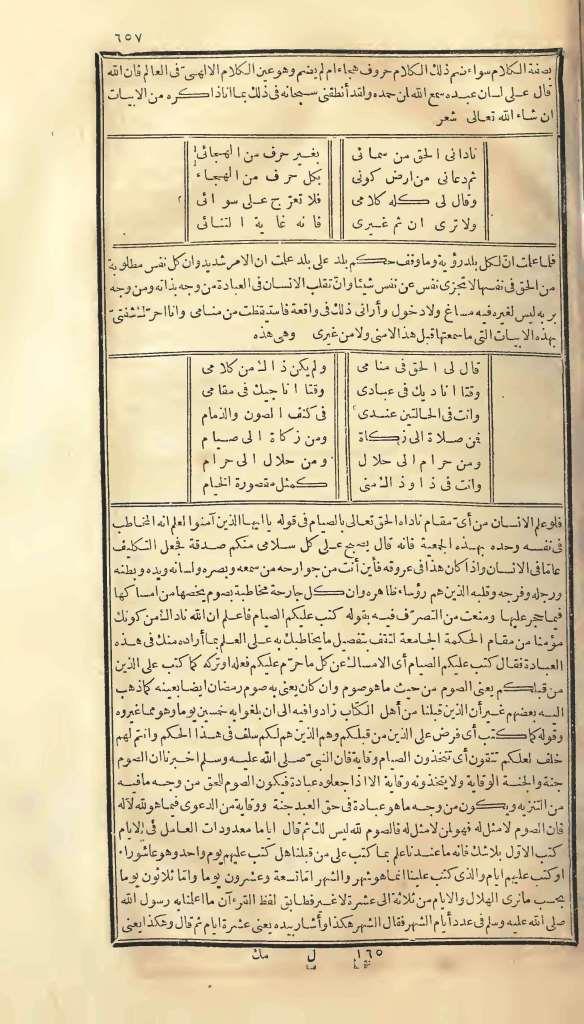 ٦٥٧
بصفة الكلام سواء ضم ذلك الكلام حروف هجاء ام لم يضم وهو عين الكلام الالهى فى العالم فان الله
قال على لسان عبده سمع الله لمن حمده ولقد أنطقنى سبحانه فى ذلك بما أنا ذاكره من الابيات
ان شاء الله تعالى شعر
نادانى الحق من سمائى بغير حرف من الهجائى
ثم دعانى من ارض كونى بكل حرف من الهجاء
وقال لى كله كلامى فلا تعرّج على سوائى
ولا ترى ان ثم غيرى فانه غاية التنائى
فلما علمت انّ لكل بلد رؤية وما وقف حكم بلد على بلد علمت ان الامر شديد وان كل نفس مطلوبة
من الحق فى نفسها لا تجزى نفس عن نفس شيئا وانّ تقلب الانسان فى العبادة من وجه بذاته ومن وجه
بربه ليس لغيره فيه مساغ ولا دخول وأرانى ذلك فى واقعة فاستيقظت من منامى وانا احرّك شفتىّ
بهذه الابيات التى ما سمعتها قبل هذا لا منى ولا من غيرى وهى هذه
قال لى الحق فى منامى ولم يكن ذاك من كلامى
وقتا اناديك فى عبادى وقتا اناجيك فى مقامى
وانت فى الحالتين عندى فى كنف الصون والذمام
فمن صلاة الى زكاة ومن زكاة الى صيام
ومن حرام الى حلال ومن حلال الى حرام
وانت فى ذا وذاك منى كمثل مقصورة الخيام
فلو علم الانسان من أىّ مقام ناداه الحق تعالى بالصيام فى قوله يا ايها الذين آمنوا لعلم انه المخاطب
فى نفسه وحده بهذه الجمعية فانه قال يصبح على كل سلامى منكم صدقة فجعل التكليف
عامّا فى الانسان واذا كان هذا فى عروقه فأين أنت من جوارحه من سمعه وبصره ولسانه ويده وبطنه
ورجله وفرجه وقلبه الذين هم رؤساء ظاهره وان كل جارحة مخاطبة بصوم يخصها من امساكها
فيما حجر عليها ومنعت من التصرّف فيه بقوله كتب عليكم الصيام فاعلم ان الله ناداك من كونك
مؤمنا من مقام الحكمة الجامعة لتقف بتفصيل ما يخاطبك به على العلم بما أراده منك فى هذه
العبادة فقال كتب عليكم الصيام أى الامساك عن كل ما حرّم عليكم فعله او تركه كما كتب على الذين
من قبلكم يعنى الصوم من حيث ما هو صوم وان كان يعنى به صوم رمضان ايضا بعينه كما ذهب
اليه بعضهم غير أن الذين قبلنا من أهل الكتاب زادوا فيه الى ان بلغوا به خمسين يوما وهو مما غيروه
وقوله كما كتب أى فرض على الذين من قبلكم وهم الذين هم لكم سلف فى هذا الحكم وانتم لهم
خلف لعلكم تتقون أى تتخذون الصيام وقاية فان النبىّ صلى الله عليه وسلم اخبرنا ان الصوم
جنة والجنة الوقاية ولا يتخذونه وقاية الا اذا جعلوه عبادة فيكون الصوم للحق من وجه ما فيه
من التنزيه ويكون من وجه ما هو عبادة فى حق العبد جنة ووقاية من الدعوى فيما هو لله لا له
فان الصوم لا مثل له فهو لمن لا مثل له فالصوم لله ليس لك ثم قال اياما معدودات العامل فى الايام
كتب الاول بلا شك فانه ما عندنا علم بما كتب على من قبلنا هل كتب عليهم يوم واحد وهو عاشوراء
او كتب عليهم ايام والذى كتب علينا انما هو شهر والشهر امّا تسعة وعشرون يوما وامّا ثلاثون يوما
بحسب ما نرى الهلال والايام من ثلاثة الى عشرة لا غير فطابق لفظ القرءآن ما اعلمنا به رسول الله
صلى الله عليه وسلم فى عدد أيام الشهر فقال الشهر هكذا وأشار بيده يعنى عشرة ايام ثم قال وهكذا يعنى
١٦٥ ل مك